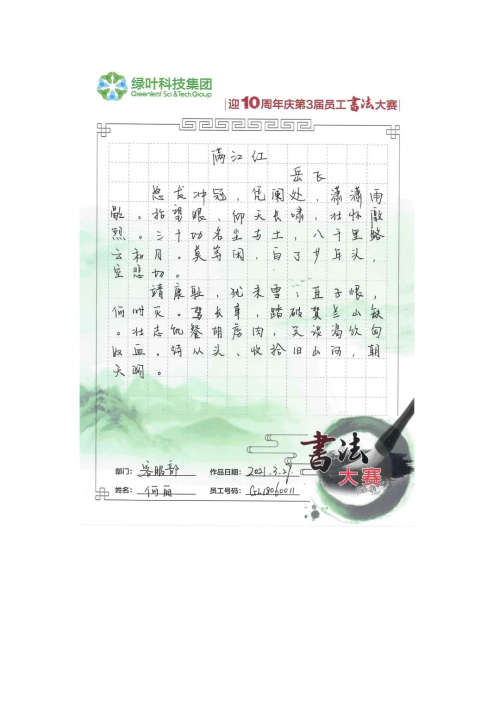 绿叶科技集团
Greenleaf Sci &Tech Group
迎10周年庆第3届员工书法大赛
满江红
岳飞
怒发冲冠，凭阑处，潇潇雨
歇。抬望眼、仰天长啸，壮怀激
烈。三十功名尘与土，八千里路
云和月。莫等闲，白了少年头，
空悲切。
靖康耻，犹未雪；臣子恨，
何时灭。驾长车，踏破贺兰山缺
。壮志饥餐胡虏肉，笑谈渴饮匈
奴血。待从头、收拾旧山河，朝
天阙。
书法
大赛
部门：客服部 作品日期：2021.3.27
姓名：何丽 员工号码：GL18060011